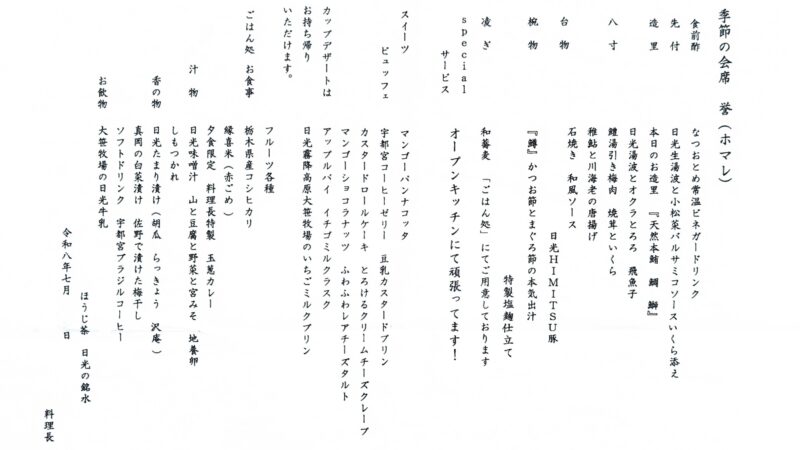 季節の会席　誉（ホマレ）
食前酢　なつおとめ常温ビネガードリンク
先付　日光生湯波と小松菜バルサミコソースいくら添え
造里　本日のお造里　『天然本鮪　鯛　鰤』
日光湯波とオクラとろろ　飛魚子
八寸　鱧湯引き梅肉　焼茸といくら
稚鮎と川海老の唐揚げ
台物　日光HIMITSU豚
石焼き　和風ソース
椀物　『鱒』かつお節とまぐろ節の本気出汁
特製塩麹仕立て
凌ぎ　和蕎麦　「ごはん処」にてご用意しております
special
サービス　オープンキッチンにて頑張ってます！
スイーツ　マンゴーパンナコッタ
ビュッフェ　宇都宮コーヒーゼリー　豆乳カスタードプリン
カスタードロールケーキ　とろけるクリームチーズクレープ
マンゴーショコラナッツ　ふわふわレアチーズタルト
カップデザートは　アップルパイ　イチゴミルクラスク
お持ち帰り　日光霧降高原大笹牧場のいちごミルクプリン
いただけます。
フルーツ各種
ごはん処　お食事　栃木県産コシヒカリ
縁喜米（赤ごめ）
夕食限定　料理長特製　玉葱カレー
汁物　日光味噌汁　山と豆腐と野菜と宮みそ　地養卵
しもつかれ
香の物　日光たまり漬け（胡瓜　らっきょう　沢庵）
真岡の白菜漬け　佐野で漬けた梅干し
ソフトドリンク　宇都宮ブラジルコーヒー
お飲物　大笹牧場の日光牛乳
ほうじ茶　日光の銘水
令和八年七月　　日
料理長